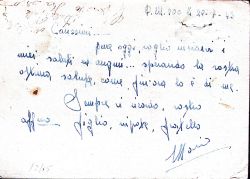 P.M. 200 li 20-7-42
Carissimi....
pure oggi, voglio inviarvi i
miei saluti ed auguri... sperando la vostra
ottima salute, come fin'ora lo è di me.
Sempre vi ricordo, vostro
affmo figlio, nipote, fratello